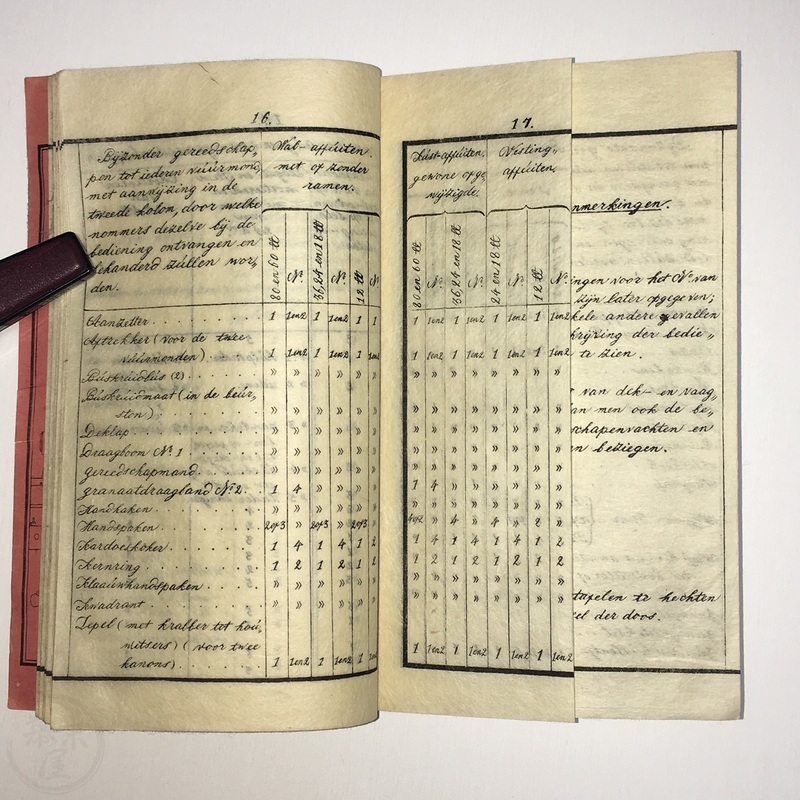 16.
Bijzonder gereedschap„
pen tot iederen vuurmond,
met aanwijzing in de
tweede kolom, door welke
nommers dezelve bij de
bediening ontvangen en
behandeld zullen wor„
den.
Wal-affuiten.
met of zonder
ramen.
80 en 60 ℔ Nº. 36,24 en 18 ℔ Nº. 12 ℔ Nº
Aanzetter 1 1en2 1 1en2 1 1
Aftrekker (voor de twee
vuurmonden) 1 1en2 1 1en2 1 1en2
Buskruidbus (2) » » » » » »
Buskruidmaat (in de beur„
ston) » » » » » »
Deklap » » » » » »
Draagboom Nº 1 » » » » » »
gereedschapmand » » » » » »
granaatdraagband Nº 2. 1 4 » » » »
Handhaken » » » » » »
Handspaken 2of3 » 2of3 » 2of3 »
Kardoeskoker 1 4 1 4 1 2
Kernring 1 2 1 2 1 2
Klaauwhandspaken » » » » » »
Kwadrant » » » » » »
Lepel (met krabber tot hou„
witsers) (voor twee
kanons) 1 1en2 1 1en2 1 1en2
17.
Kust-affuiten,
gewone of ge
wijzigde.
Vesting„
affuiten.
80 en 60 ℔ Nº. 36,24 en 18 ℔ Nº. 24 en 18 ℔ Nº. 12 ℔ Nº.
1 1en2 1 1en2 1 1en2 1 1en2
1 1en2 1 1en2 1 1en2 1 1en2
» » » » » » » »
» » » » » » » »
» » » » » » » »
» » » » » » » »
» » » » » » » »
1 4 » » » » » »
» » » » » » » »
» 4 » 4 » 2 »
1 4 1 4 1 4 1 2
1 2 1 2 1 2 1 2
» » » » » » » »
» » » » » » » »
1 1en2 1 1en2 1 1en2 1 1en2
nmerkingen.
ingen voor het Nº van
zijn later opgegeven;
kele andere gevallen
krijving der bedie„
te zien.
van dek- en vaag„
an men ook de be„
schapenvachten en
n beziegen.
tapelen te hechten
el der doos.